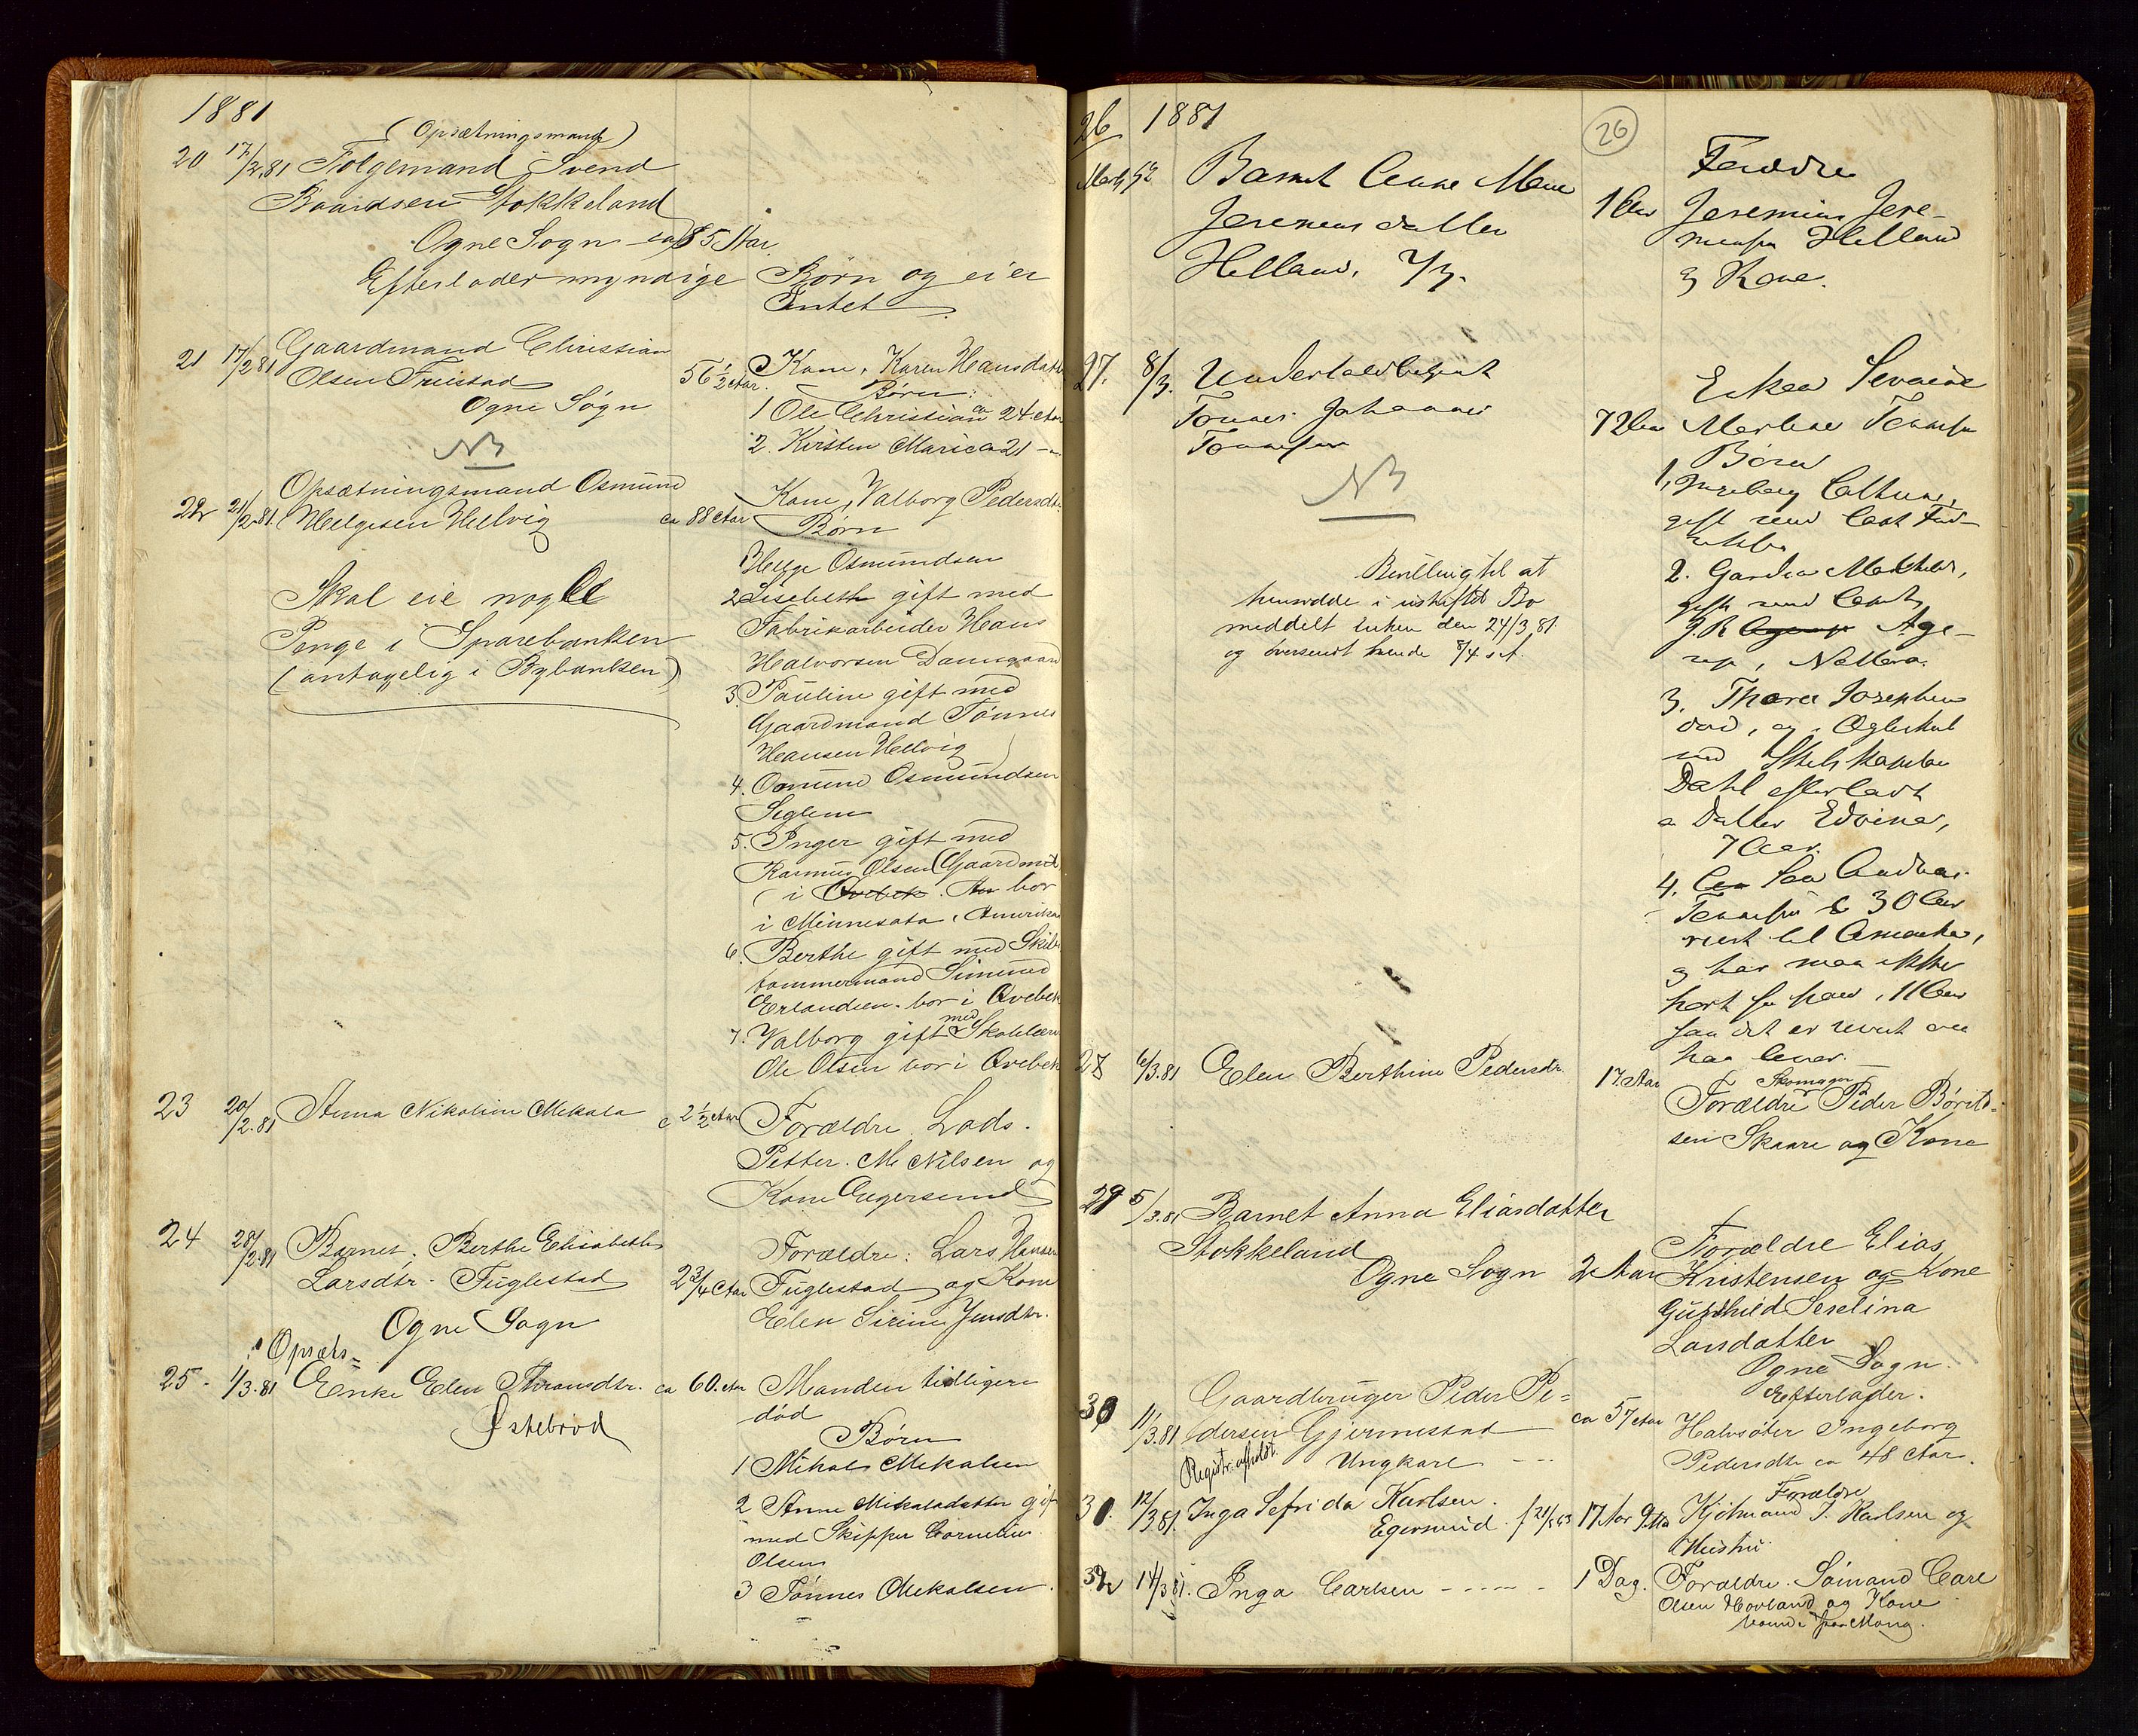 1881
(Opsætningsmand)
20 17/2.81 Følgemand Svend
Baardsen Stokkeland
Ogne Sogn ca 85 Aar
Efterlader myndige Børn og eier
Intet
21 17/2 81 Gaardmand Christian
Olsen Fristad 56 1/2 Aar. Kone, Karen Hansdatt
Ogne Sogn Børn:
1 Ole Christian ca 24 Aar
2. Kirsten Marie ca 21 -
NB
22 21/2.81. Opsætningsmand Osmund
Helgesen Hellvig ca 88 Aar Kone, Valborg Pedersdtr.
Børn
1 Helge Osmundsen
2 Lisebeth gift med
Fabrikarbeider Hans
Halvorsen Damsgaard
3. Pauline gift med
Gaardmand Tønnes
Hansen Helvig
4. Osmund Osmundsen
Seglem
5. Inger gift med
Rasmus Olsen (Gaardmd
(i Qvebek. bor
i Minnesota, Amerika
6. Berthe gift med Skibs
tømmermand Simund
Erlandsen. bor i Qvebek
7. Valborg gift med Skolelærer
Ole Olsen bor i Qvebek
Skal eie nogle
Penge i Sparebanken
(antagelig i Bybanken)
23 20/2.81 Anna Nikoline Mekala c 2 1/2 Aar Forældre. Lods.
Petter. M. Nilsen og
Kone Egersund
24 28/2.81 Barnet, Berthe Elisabeth Forældre: Lars Hansen
Larsdtr. Fuglestad 2 3/4 Aar Fuglestad og Kone
Ogne Sogn Elen Sirine Jensdtr.
Opsæts=
25. 1/3.81 Enke Elen Thransdtr. ca 60. Aar Manden tidligere
Østebrød død
Børn
1 Mikal Mekalsen
2 Anne Mikalsdatter gif
med Skipper Cornelius
Olsen
3 Tønnes Mekalsen.
26 1881 26
Barnet Anne
Jeremiasdatter 1 Aar Jeremias Jere-
Helland, 7/3. miasen Helland
& Kone.
27. 8/3. Underfoldbetjent
Tønnes Johannes 72 Aar
Tønnesen
Børn
NB
gift med
2. Mathilde,
gift med
3. Thora Josephine
død, og i Ægteskab
med
Dahl efterladt
a Datter Edvina,
7 Aar.
4.
30 Aar
reist til Amerika,
& har man ikke
hørt fra ham i 11 Aar
saa det er uvist om
han lever.
Bevilling til at
hensidde i uskiftet Bo
meddelt Enken den 24/3 81.
og oversendt hende 8/4 s.A.
28 6/3.81 Elen Berthine Pedersdtr. 17 Aar Skomager
Forældre Peder Børild=
sen Skaare og Kone
29 5/3.81 Barnet Anna Eliasdatter
Stokkeland Forældre Elias
Ogne Sogn 2 Aar Kristensen og Kone
Gunhild Serelina
Larsdatter
Ogne Sogn.
30 11/3.81 Gaardbruger Peder Pe= Efterlader.
dersen Gjermestad ca 57 Aar Halvsøster Ingeborg
Registr. afholdt. Ungkarl - - - Pedersdtr ca 48 Aar.
31. 12/3 81. Inga Sefrida Karlsen. Forældre
Egersund. f 21/5 63 17 Aar 9 Mdr Kjøbmand J. Karlsen og
Hustru.
32 14/3 81. Inga Carlsen - - - - 1 Dag. Forældre. Sømand Carl
Olsen Hovland og Kone